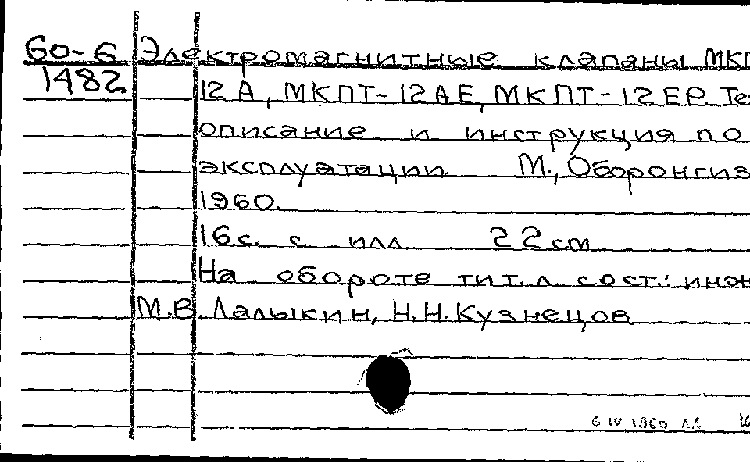 60-6 Электромагнитные клапаны МКП
1482 12А, МКПТ-12АЕ, МКПТ-12ЕР. Те
описание и инструкция по
эксплуатации М., Оборонгиз
1960.
16с. с илл. 22см
На обороте тит. л. сост.: инж
М.В. Лалыкин, Н.Н. Кузнецов
6 IV 1960